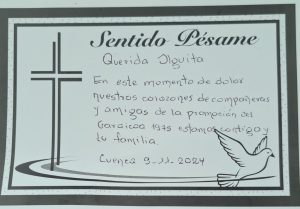 Sentido Pésame
Querida Olguita
En este momento de dolor
nuestros corazones de compañeros
y amigos de la promoción del
Garaicoa 1975 estamos contigo y
tu familia.
Cuenca 9-11-2024